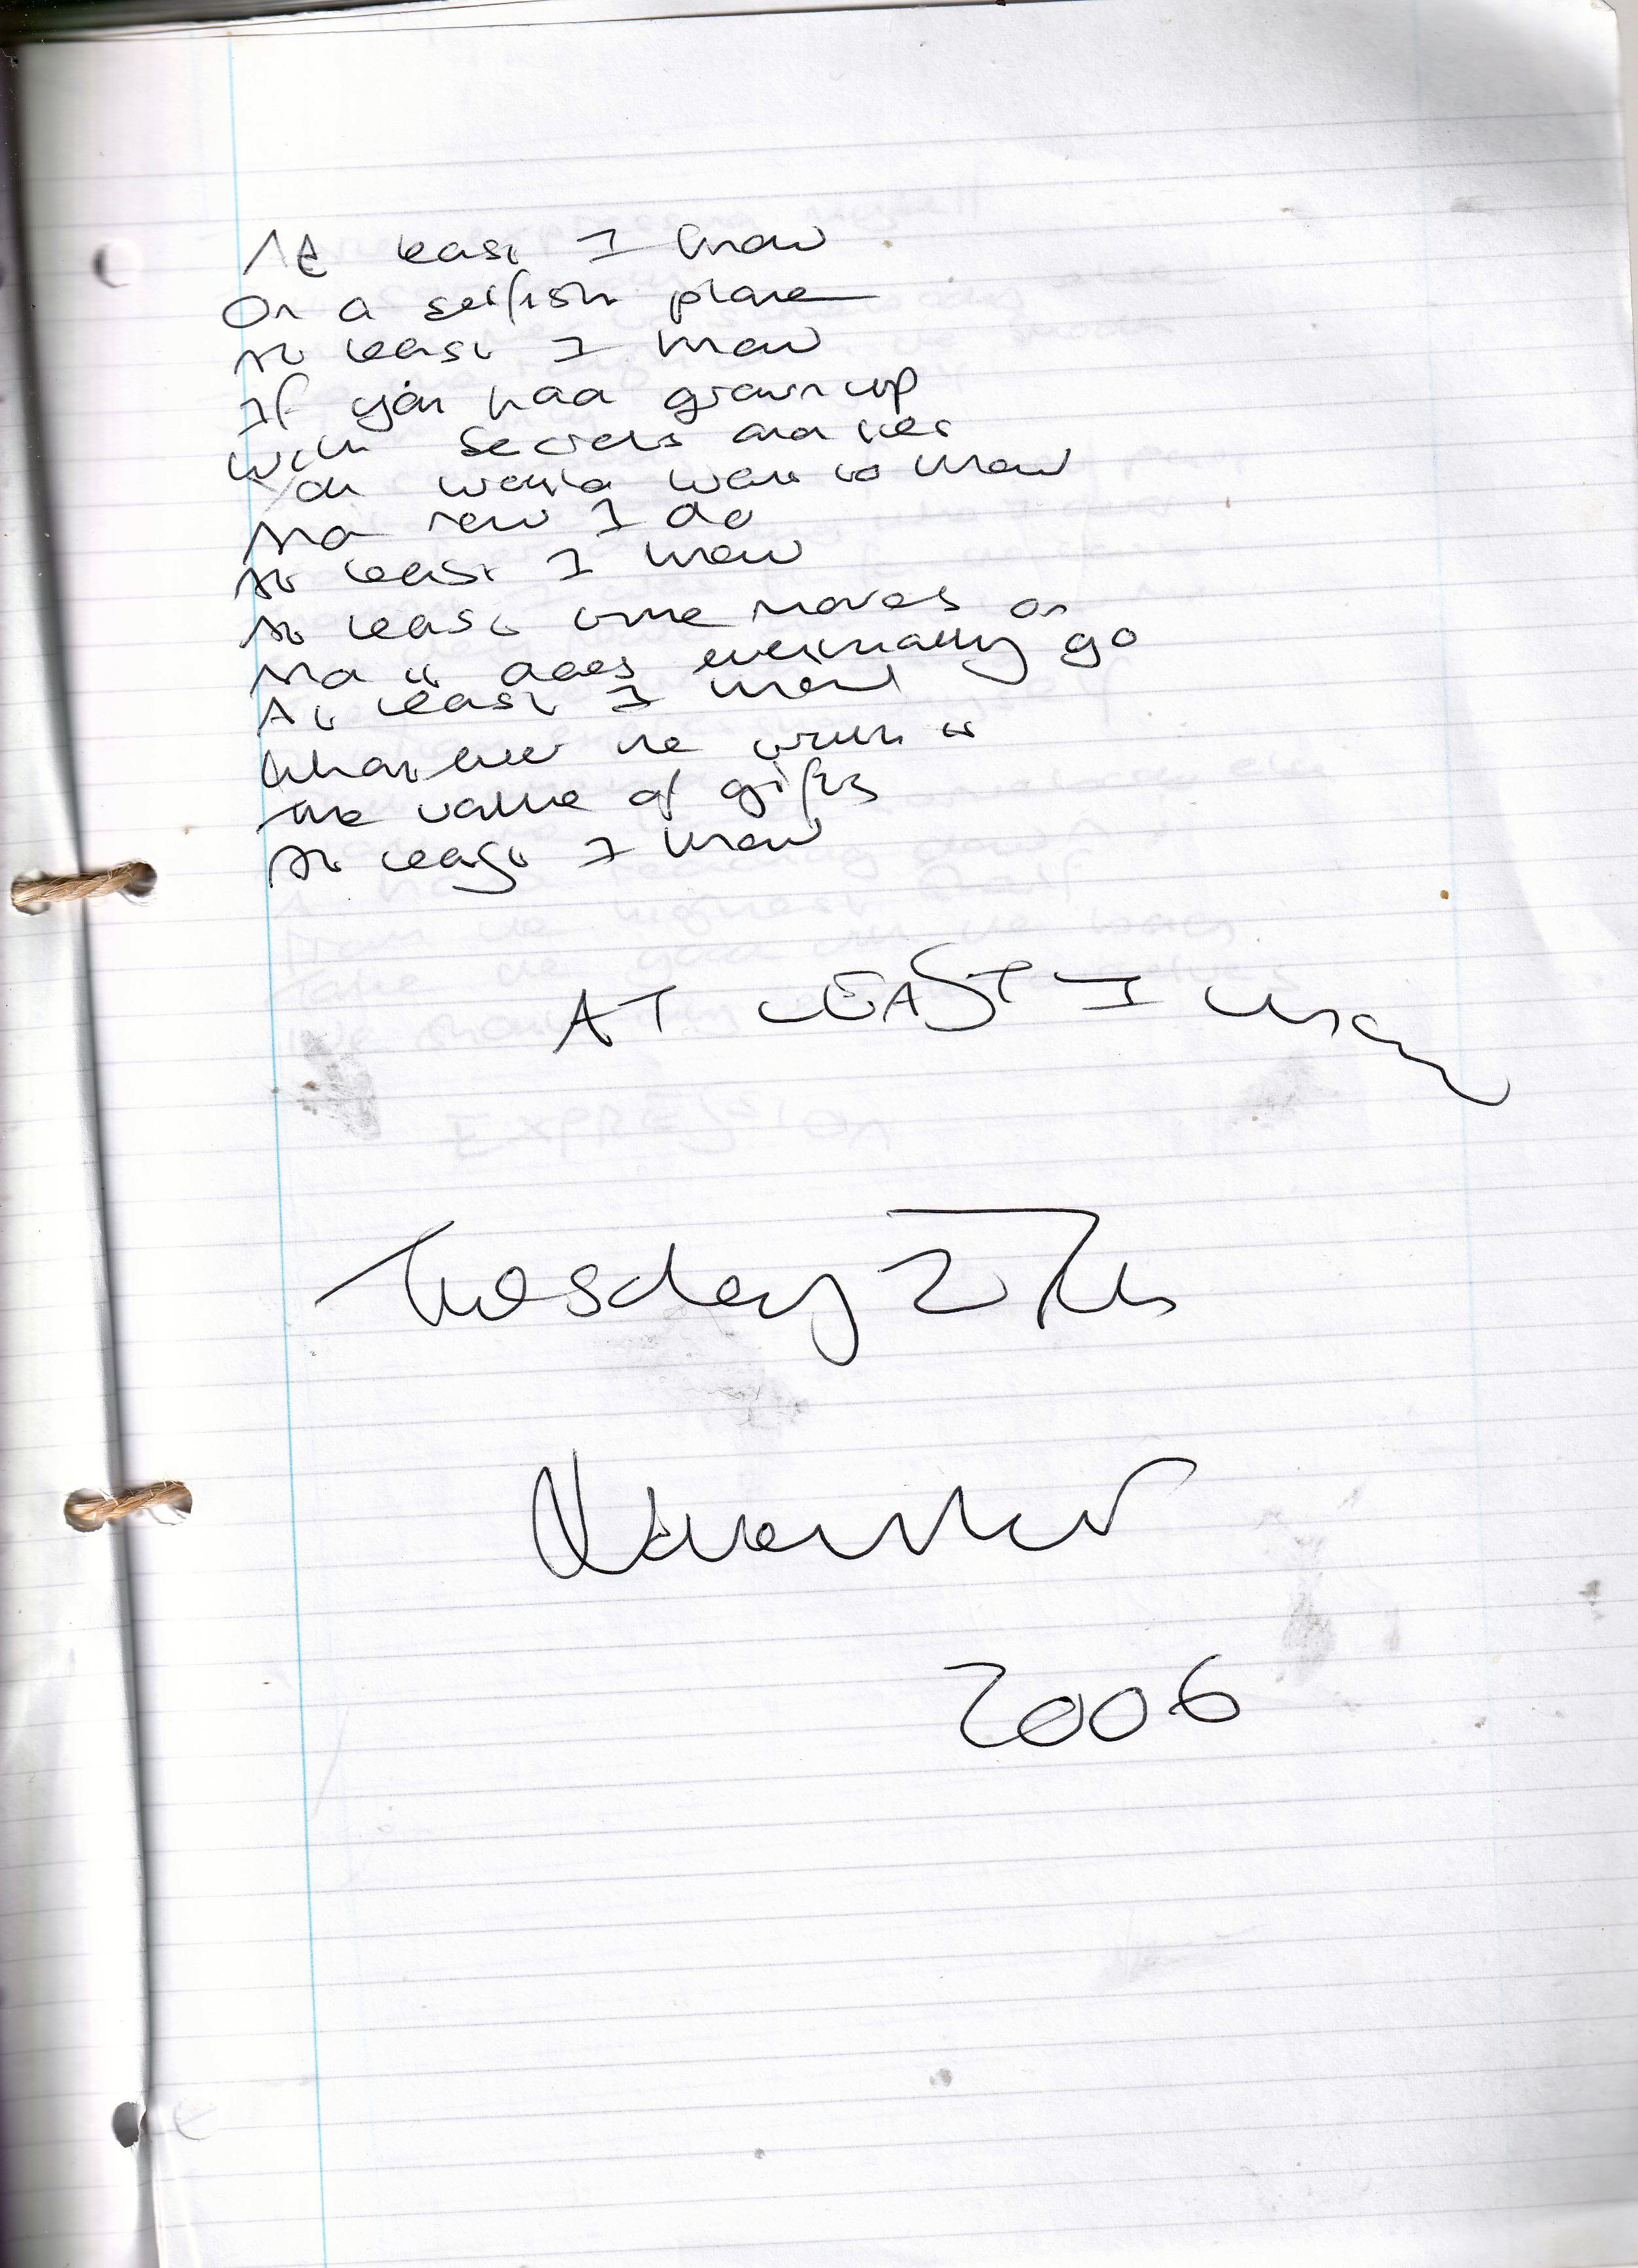 At least I know
On a selfish plane
At least I know
If you had grown up
With secrets and lies
You would want to know
And now I do
At least I know
At least time moves on
And it does eventually go
At least I know
Whatever the truth is
The value of gifts
At least I know
AT LEAST I know
Tuesday 27th
November
2006
EXPRESSION